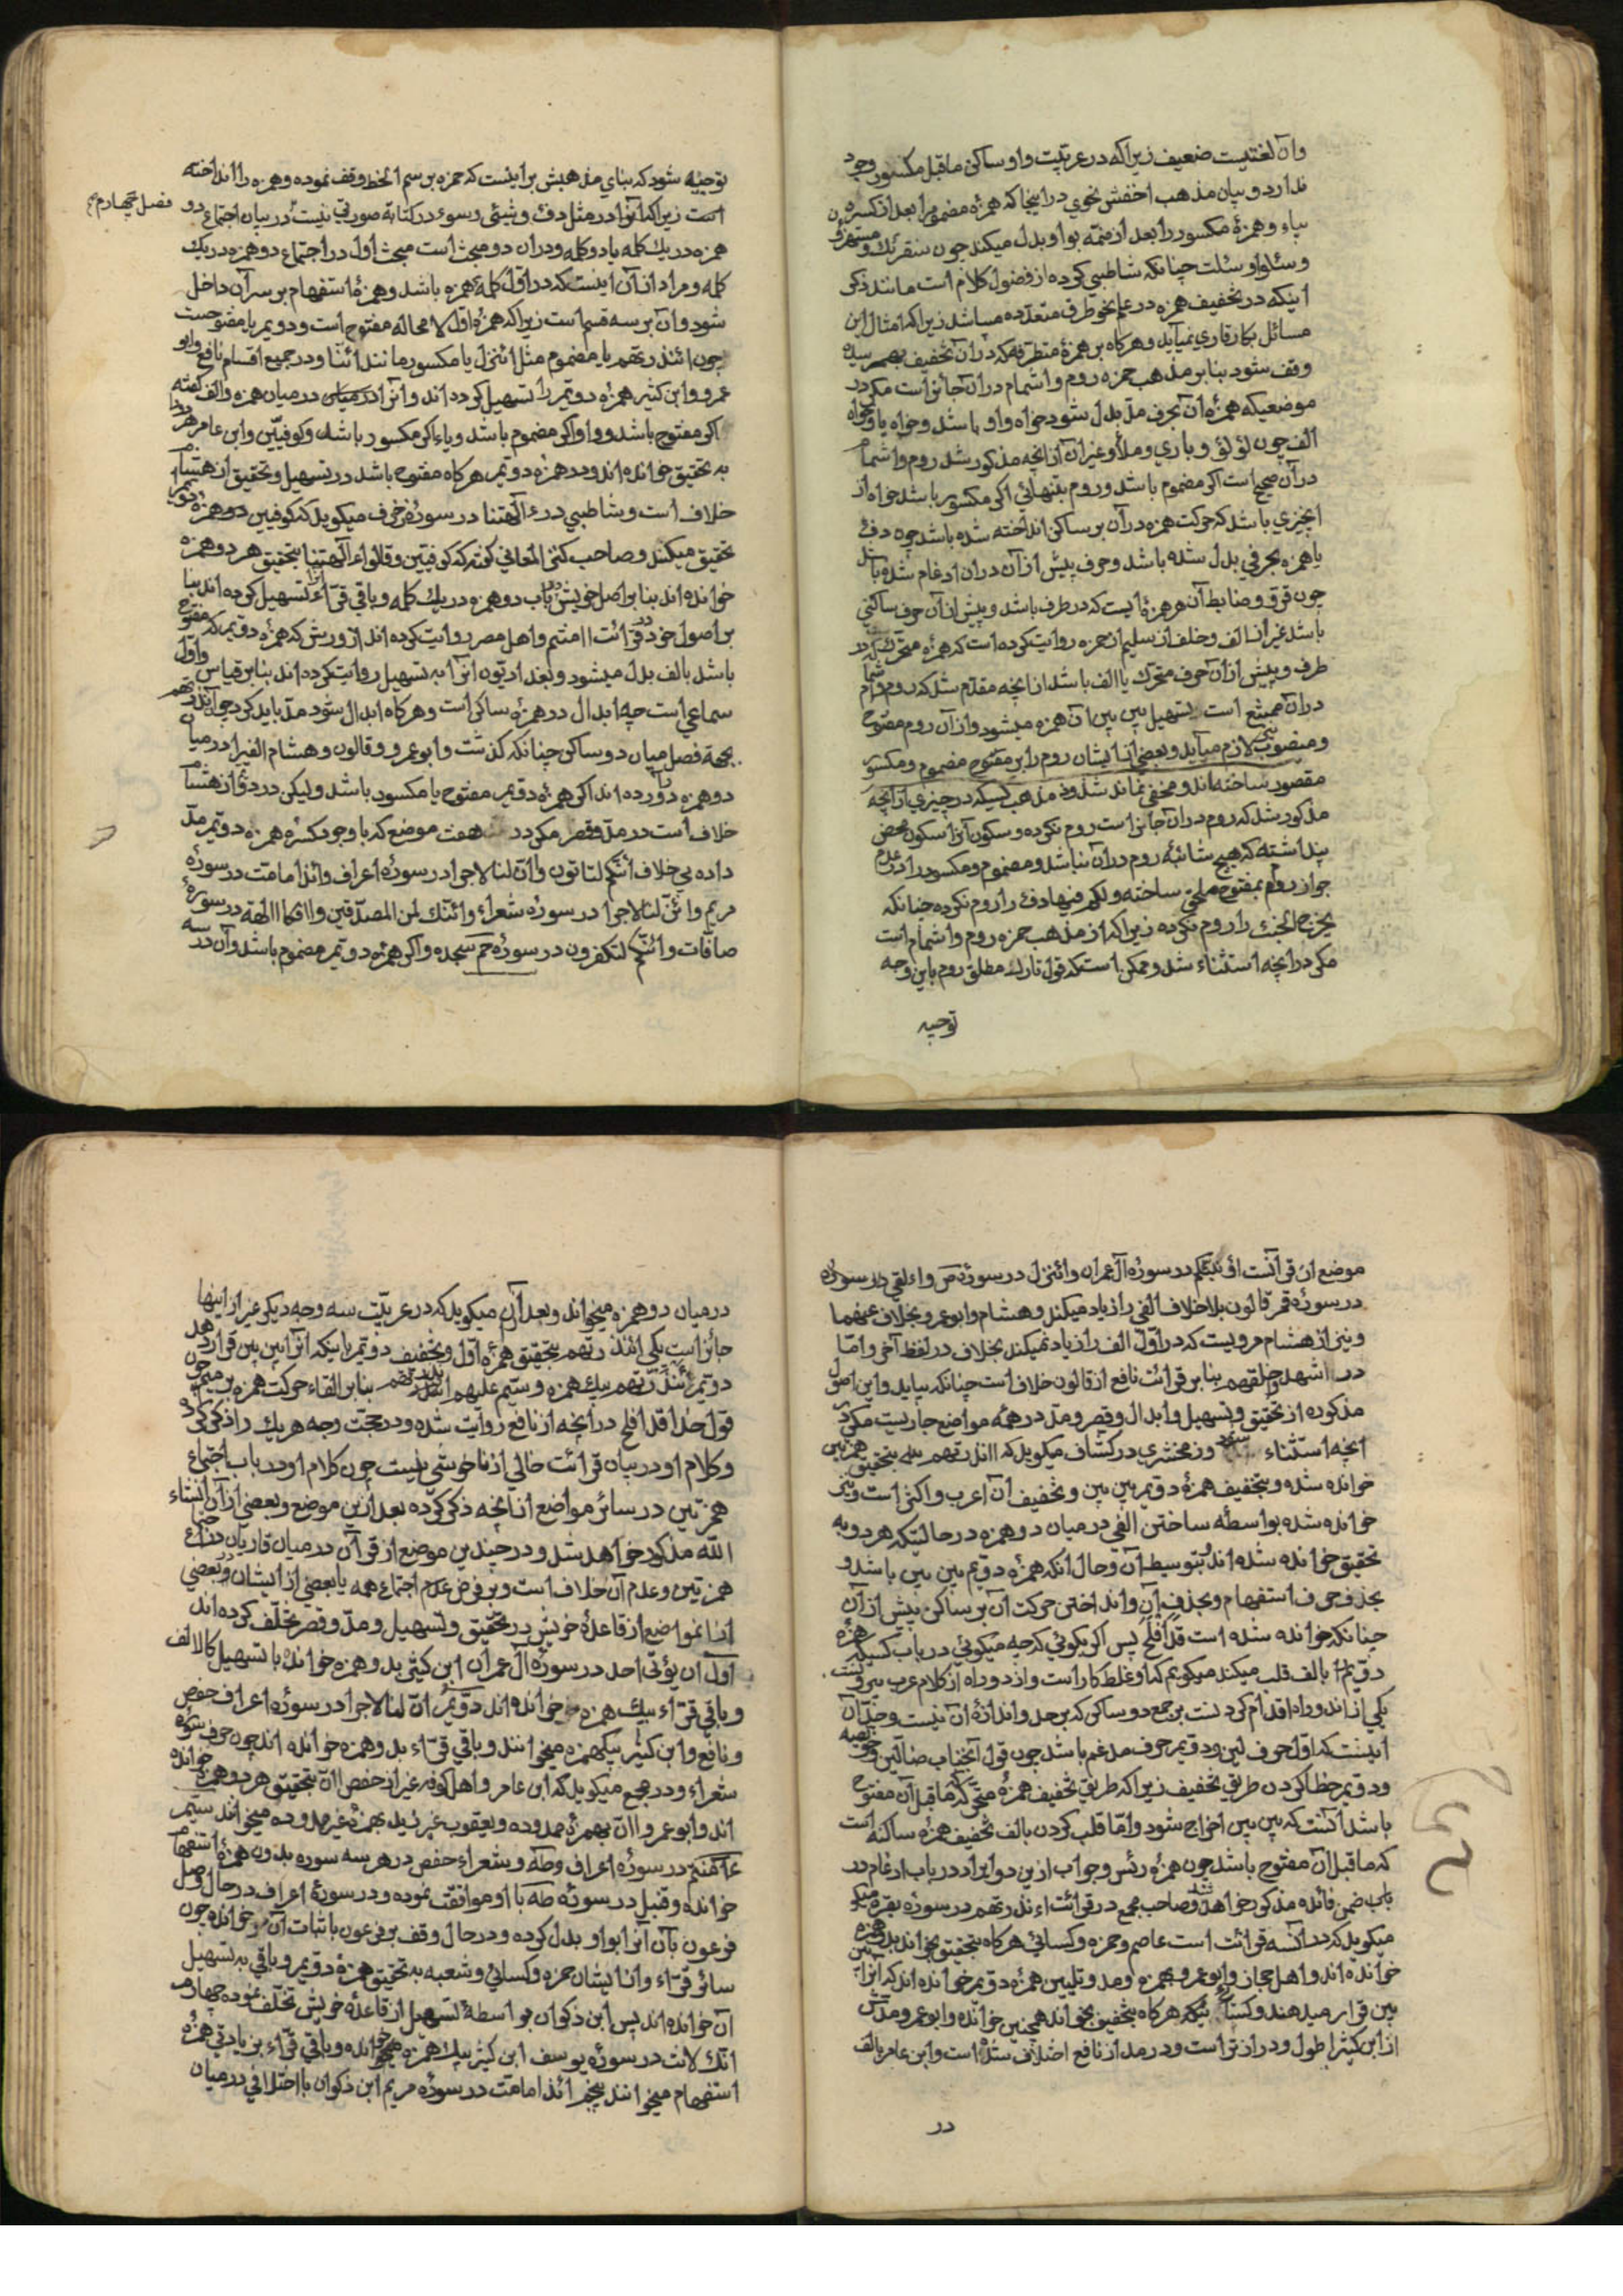 وآن لغتیست ضعیف زیراکه در عربیت واو ساکن ماقبل مکسور وجود
ندارد و بیان مذهب اخفش نحوی در اینجا که همزهٔ مضموم را بعد از کسره
بیاء و همزهٔ مکسور را بعد از ضمه بواو بدل میکند چون سنقرئك و مستهزؤن
و سئلوا و سئلت چنانکه شاطبی کرده از فضول کلام است مانند ذکر
اینکه در تخفیف همزه در علم نحو طرق متعدده میباشد زیراکه امثال این
مسائل بکار قاری نمیآید و هرکاه بر همزهٔ متطرفه که در آن تخفیف بهم رسیده
وقف شود بنابر مذهب حمزه روم و اشمام در آن جائز است مکر در
موضعیکه همزهٔ آن بحرف مد بدل شود خواه واو باشد و خواه یا و خواه
الف چون لؤلؤ و باری و ملأ و غیر آن از آنچه مذکور شد روم و اشمام
در آن صحیح است اکر مضموم باشد و روم بتنهائی اکر مکسور باشد خواه از
انچیزی باشد که حرکت همزه در آن بر ساکن انداخته شده باشد چون دفء
یا همزه بحرفی بدل شده باشد و حرف پیش از آن در آن ادغام شده باشد
چون قروء و ضابط آن هر همزهٔ ایست که در طرف باشد و پیش از آن حرف ساکنی
باشد غیر از الف و خلف از سلیم از حمزه روایت کرده است که همزهٔ متحرک که در
طرف و پیش از آن حرف متحرک یا الف باشد از آنچه مقدم شد که روم و اشمام
در آن ممتنع است تسهیل بین بین آن همزه میشود و از آن روم مفتوح
و منصوب نیز لازم میآید و بعضی از ایشان روم را بر مفتوح مضموم و مکسور
مقصور ساخته اند و مخفی نماند شذوذ مذهب کسیکه در چیزی از آنچه
مذکور شد که روم در آن جائز است روم نکرده و سکون آنرا سکون محض
پنداشته که هیچ شائبهٔ روم در آن نباشد و مضموم و مکسور را در عدم
جواز روم بمفتوح ملحق ساخته و لکم فیها دفء را روم نکرده چنانکه
یخرج الخبء را روم نکرده زیراکه از مذهب حمزه روم و اشمام است
مکر در آنچه استثناء شد و ممکن است که قول تارك مطلق روم باین وجه
توجیه
توجیه شود که بنای مذهبش بر اینست که حمزه بر رسم الخط وقف نموده و همزه را انداخته
است زیراکه آنرا در مثل دفء و شیئ و سوء در کتابة صورتی نیست در بیان اجتماع دو
فصل چهارم
همزه در یك کلمه یا دو کلمه و در آن دو مبحث است مبحث اول در اجتماع دو همزه در یك
کلمه و مراد از آن اینست که در اول کلمهٔ همزه باشد و همزهٔ استفهام بر سر آن داخل
شود و آن بر سه قسم است زیراکه همزهٔ اول لا محاله مفتوح است و دویم یا مفتوحست
چون ائنذرتهم یا مضموم مثل ائنزل یا مکسور مانند ائنا و در جمیع اقسام نافع و ابو
عمرو و ابن کثیر همزهٔ دویم را تسهیل کرده اند و آنرا در میان همزه و الف کفته
اکر مفتوح باشد و واو اکر مضموم باشد و یاء اکر مکسور باشد و کوفیین و ابن عامر هر دو را
به تحقیق خوانده اند و در همزهٔ دویم هرکاه مفتوح باشد در تسهیل و تحقیق از هشام
خلاف است و شاطبی در ءالهتنا در سورهٔ زخرف میکوید که کوفیین دو همزهٔ دویم را
تحقیق میکنند و صاحب کنز المعانی کفته که کوفیین و قالوا ءالهتنا بتحقیق هر دو همزه
خوانده اند بنابر اصل خویش در باب دو همزه در یك کلمه و باقی قراء تسهیل کرده اند بنا
بر اصول خود در قرائت ءامنتم و اهل مصر روایت کرده اند از ورش که همزهٔ دویم که مفتوح
باشد بالف بدل میشود و بغدادیون آنرا به تسهیل روایت کرده اند بنابر قیاس و اول
سماعی است چه ابدال در همزهٔ ساکن است و هرکاه ابدال شود مد باید کرد چون ءانذرتهم
بجهة فصل میان دو ساکن چنانکه کذشت و ابوعمرو و قالون و هشام الفی را در میان
دو همزه درآورده اند اکر همزهٔ دویم مفتوح یا مکسور باشد و لیکن در دؤم از هشام
خلاف است در مد و قصر مکر در هفت موضع که با وجود کسرهٔ همزه دویم مد
داده بی خلاف ائنکم لتاتون و ائن لنا لاجرا در سورهٔ اعراف و ائذا مامت در سورهٔ
مریم و ائن لنا لاجرا در سورهٔ شعراء و ائنك لمن المصدقین و ائفکا الهة در سورهٔ
صافات و ائنکم لتکفرون در سورهٔ حم سجده و اکر همزهٔ دویم مضموم باشد و آن در سه
موضع از قرآنست اؤنبئکم در سورهٔ آل عمران و ائنزل در سورهٔ ص و اءلقی در سوره
در سورهٔ قمر قالون بلا خلاف الفی را زیاد میکند و هشام و ابوعمرو بخلاف عنهما
و نیز از هشام مرویست که در اول الف را زیاد نمیکند بخلاف در لفظ آخر و اما
در ءاشهدوا خلقهم بنابر قرائت نافع از قالون خلاف است چنانکه بیاید و این اصول
مذکوره از تحقیق و تسهیل و ابدال و قصر و مد در همه مواضع جاریست مکر در
آنچه استثناء شود و زمخشری در کشاف میکوید که ءانذرتهم بتحقیق همزتین
خوانده شده و بتخفیف همزهٔ دویم بین بین و تخفیف آن اعرب و اکثر است و نیز
خوانده شده بواسطهٔ ساختن الفی در میان دو همزه در حالتیکه هر دو به
تحقیق خوانده شده اند و بتوسیط آن و حال آنکه همزهٔ دویم بین بین باشد و
بحذف حرف استفهام و بحذف آن و انداختن حرکت آن بر ساکن پیش از آن
چنانکه خوانده شده است قد افلح پس اکر بکوئی که چه میکوئی در باب کسیکه همزهٔ
دویم را بالف قلب میکند میکویم که او غلط کار است و از دو راه از کلام عرب بیرونست
یکی از اندو راه اقدام کردنست بر جمع دو ساکن که بر حد و اندازهٔ آن نیست و حد آن
اینست که اول حرف لین و دویم حرف مدغم باشد چون قول آنجناب ضالین و خویصه
و دویم خطا کردن طریق تخفیف زیراکه طریق تخفیف همزهٔ متحرکه که ماقبل آن مفتوح
باشد آنست که بین بین اخراج شود و اما قلب کردن بالف تخفیف همزهٔ ساکنه است
که ماقبل آن مفتوح باشد چون همزهٔ رئس و جواب از این دو ایراد در باب ادغام در
باب ضمن فائده مذکور خواهد شد و صاحب مجمع در قرائت ءانذرتهم در سورهٔ بقره میکو
میکوید که در آن سه قرائت است عاصم و حمزه و کسائی هرکاه بتحقیق بخوانند بدو همزه
خوانده اند و اهل حجاز و ابوعمرو بهمزه و مد و تلیین همزهٔ دویم خوانده اند که آنرا بین
بین قرار میدهند و کسائی نیکه هرکاه بتخفیف بخواند همچنین خوانده و ابوعمرو و مدش
از ابن کثیر اطول و درازتر است و در مد از نافع اختلاف شده است و ابن عامر بالف
در
در میان دو همزه میخواند و بعد از آن میکوید که در عربیت سه وجه دیکر غیر از اینها
جائز است یکی ائنذرتهم بتحقیق همزهٔ اول و تخفیف دویم باینکه آنرا بین بین قرار دهد
دویم أنذرتهم بیك همزه و سیم علیهم انذرتهم بنابر القاء حرکت همزه بر میم چون
قول خدا قد افلح در آنچه از نافع روایت شده و در حجت وجه هر یك را ذکر کرده
و کلام او در بیان قرائت خالی از ناخوشی نیست چون کلام او در باب اجتماع
همزتین در سائر مواضع از آنچه ذکر کرده بعد از این موضع و بعضی از آن انشاء
الله مذکور خواهد شد و در چندین موضع از قرآن در میان قاریان در اجتماع
همزتین و عدم آن خلاف است و بر فرض عدم اجتماع همه یا بعضی از ایشان در بعضی
از آنمواضع از قاعدهٔ خویش در تحقیق و تسهیل و مد و قصر تخلف کرده اند
اول ان یؤتی احد در سورهٔ آل عمران ابن کثیر بدو همزه خوانده با تسهیل کالالف
و باقی قراء بیك همزه خوانده اند دویم ان لنا لاجرا در سورهٔ اعراف حفص
و نافع و ابن کثیر بیکهمزه میخوانند و باقی قراء بدو همزه خوانده اند چون حرف سورهٔ
شعراء و در مجمع میکوید که ابن عامر و اهل کوفه غیر از حفص اان بتحقیق هر دو همزه خوانده
اند و ابوعمرو اان بهمزهٔ ممدوده و یعقوب غیر زید بهمزهٔ غیر ممدوده میخوانند سیم
ءامنتم در سورهٔ اعراف و طه و شعراء حفص در هر سه سوره بدون همزهٔ استفهام
خوانده و قنبل در سورهٔ طه با او موافقت نموده و در سورهٔ اعراف در حال وصل
فرعون بآن آنرا بواو بدل کرده و در حال وقف بر فرعون باثبات آن خوانده چون
سائر قراء و از ایشان حمزه و کسائی و شعبه به تحقیق همزهٔ دویم و باقی به تسهیل
آن خوانده اند پس ابن ذکوان بواسطهٔ تسهیل از قاعدهٔ خویش تخلف نموده چهارم
انك لانت در سورهٔ یوسف ابن کثیر بیك همزه میخوانده و باقی قراء بزیادتی همزهٔ
استفهام میخوانند پنجم ائذا مامت در سورهٔ مریم ابن ذکوان با اختلافی در میان